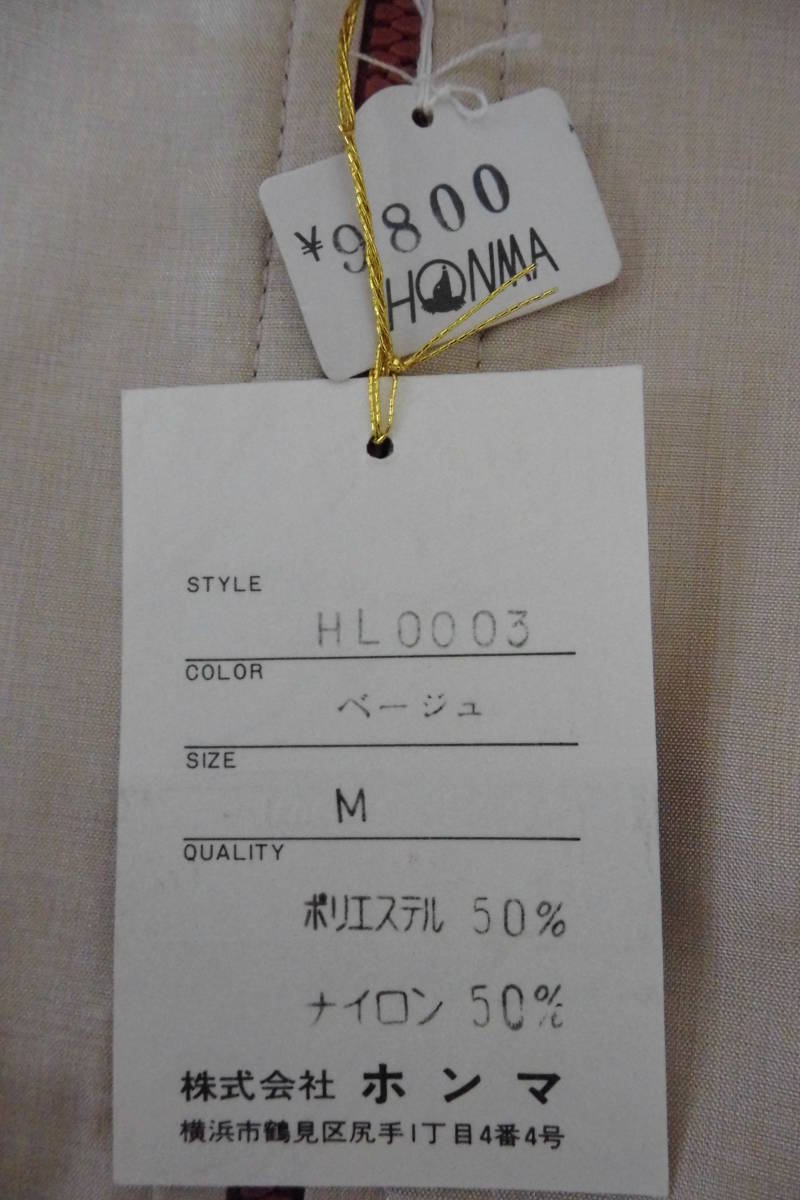 ¥9800
HONMA
STYLE
HL0003
COLOR
ベージュ
SIZE
M
QUALITY
ポリエステル 50%
ナイロン 50%
株式会社 ホンマ
横浜市鶴見区尻手1丁目4番4号